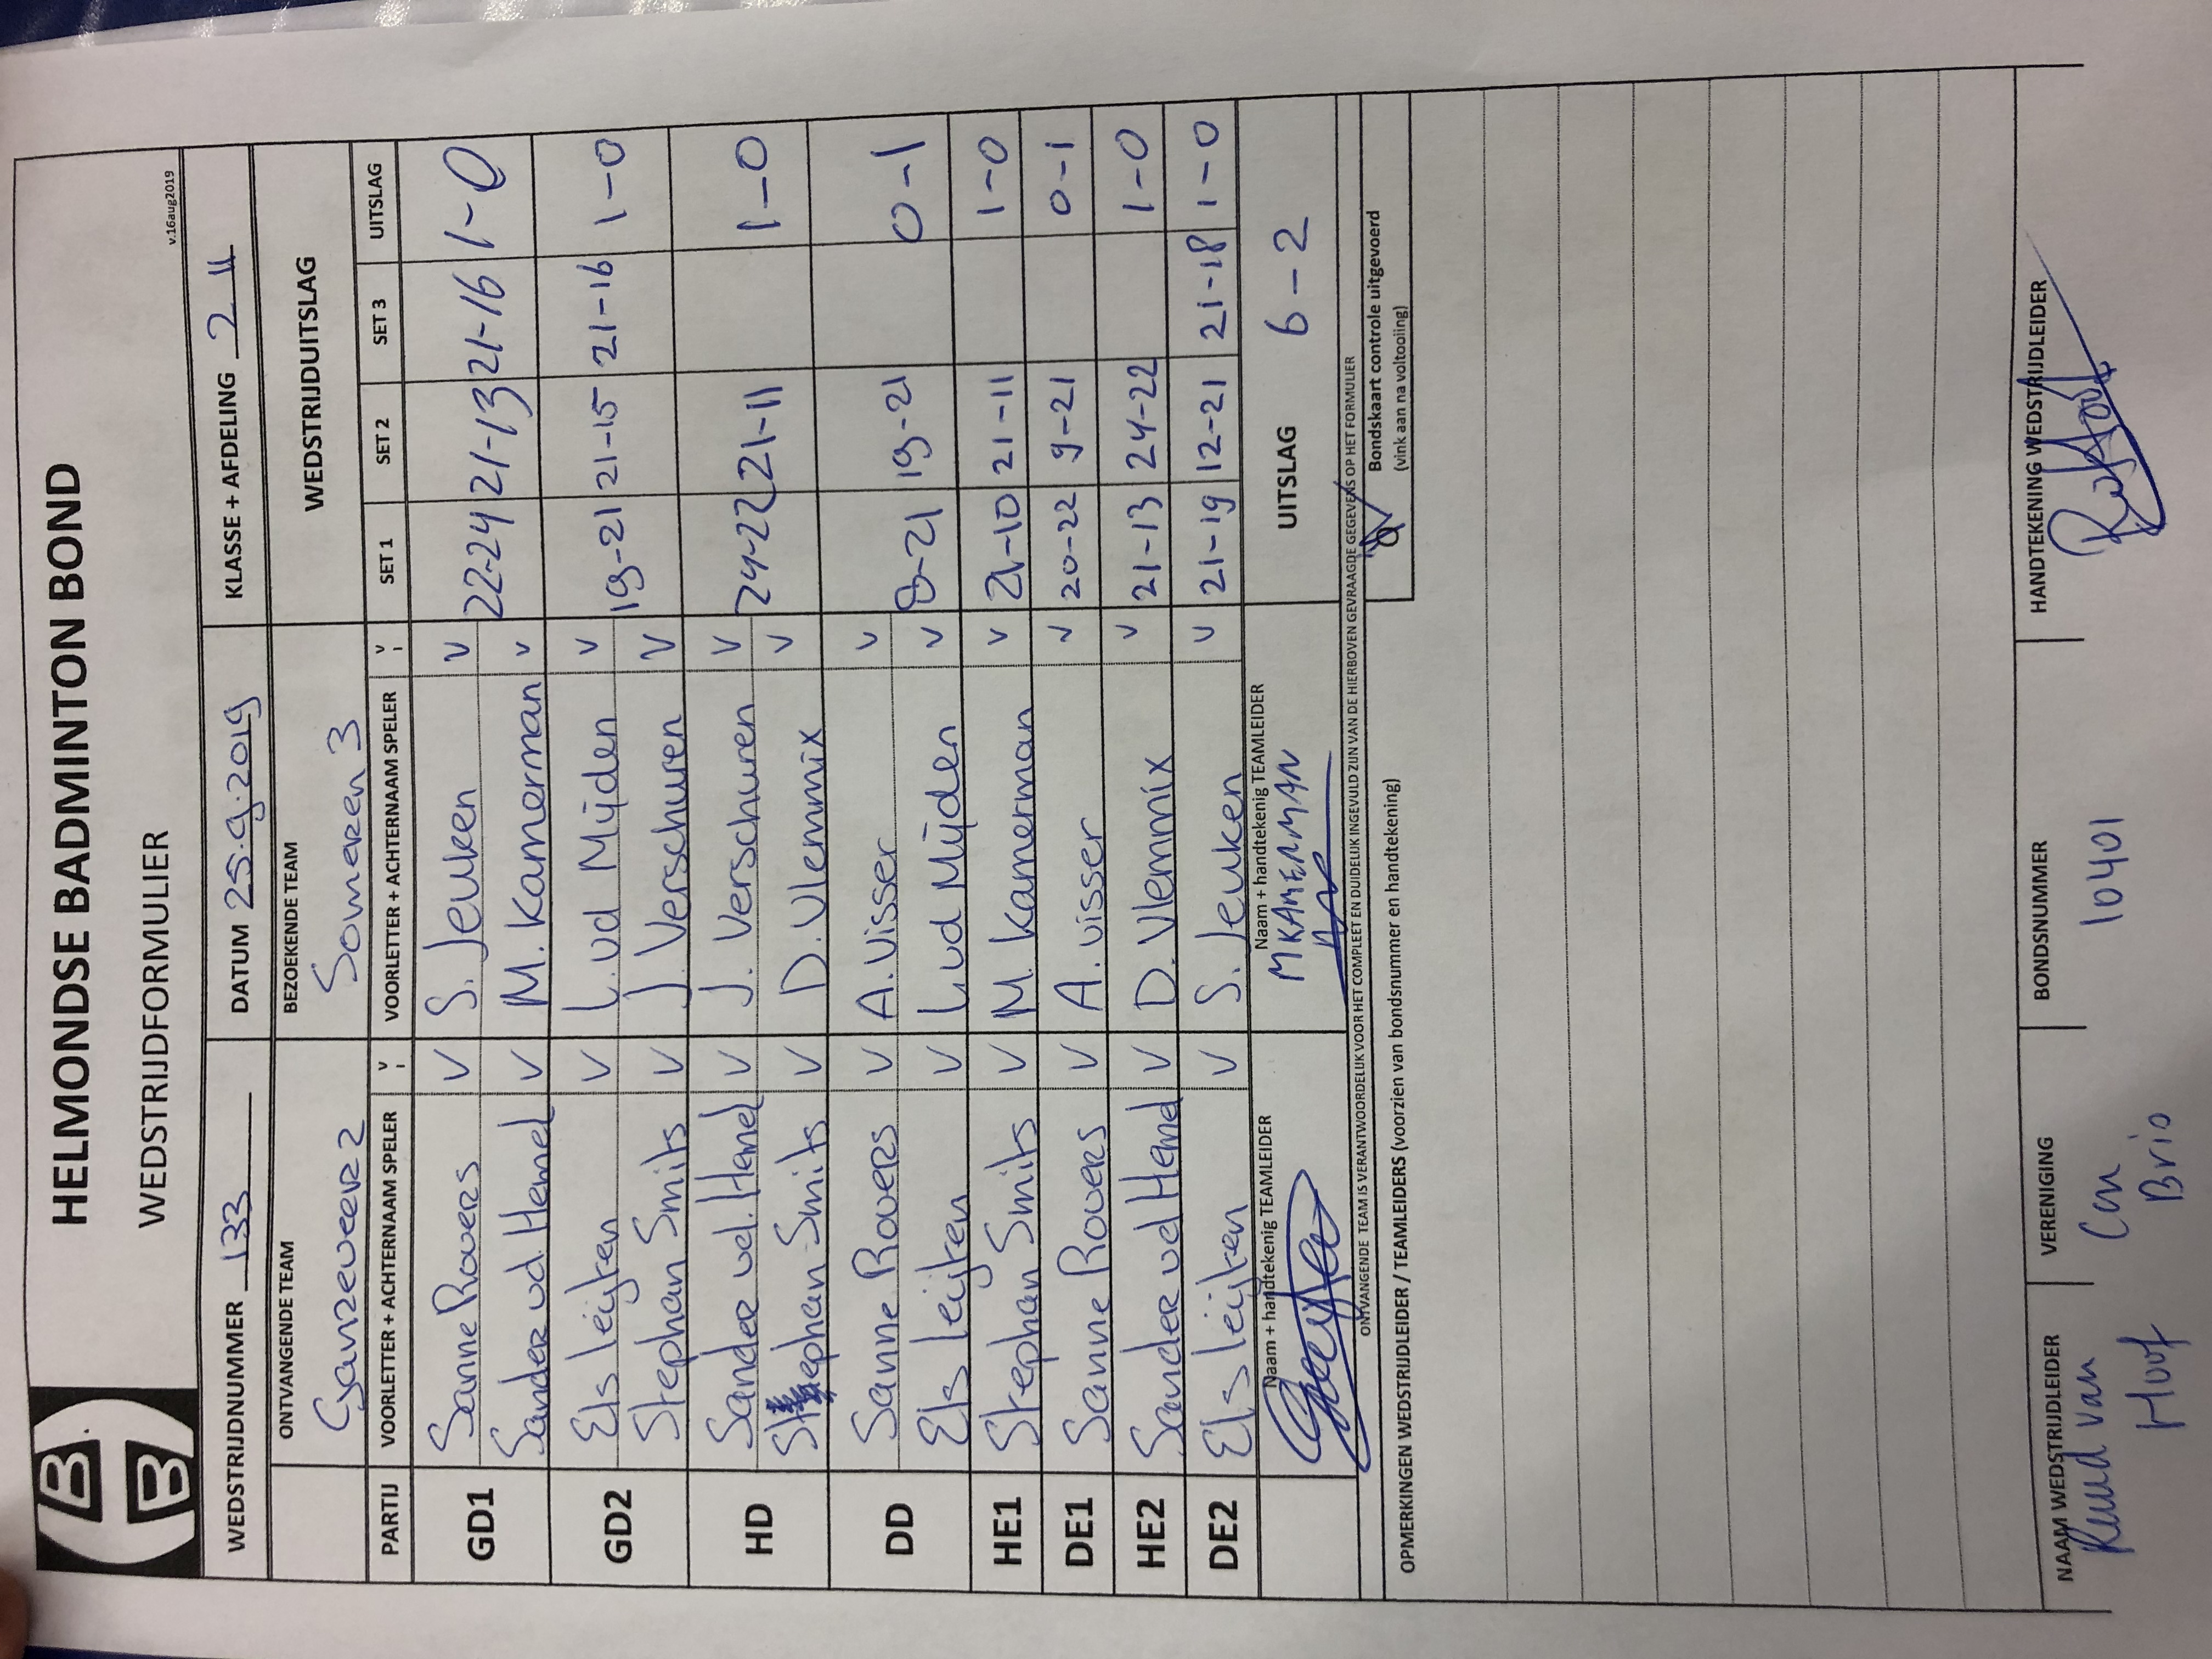 HELMONDSE BADMINTON BOND
WEDSTRIJDFORMULIER
v.16aug2019
WEDSTRIJDNUMMER 133 DATUM 25-9-2019 KLASSE + AFDELING 2 II
ONTVANGENDE TEAM BEZOEKENDE TEAM WEDSTRIJDUITSLAG
Ganzeveer 2 Someren 3
PARTIJ VOORLETTER + ACHTERNAAM SPELER V VOORLETTER + ACHTERNAAM SPELER V SET 1 SET 2 SET 3 UITSLAG
GD1 Sanne Rovers V S. Jeuken V 22-24 21-13 21-16 1-0
Sander vd. Hemel V M. Kamerman V
GD2 Els leijten V L. vd Mijden V 19-21 21-15 21-16 1-0
Stephan Smits V J. Verschuren V
HD Sander vd. Hemel V J. Verschuren V 24-22 21-11 1-0
Stephan Smits V D. Vlemmix V
DD Sanne Rovers V A. Visser V 8-21 19-21 0-1
Els leijten V L. vd Mijden V
HE1 Stephan Smits V M. Kamerman V 21-10 21-11 1-0
DE1 Sanne Rovers V A. Visser V 20-22 9-21 0-1
HE2 Sander vd Hemel V D. Vlemmix V 21-13 24-22 1-0
DE2 Els leijten V S. Jeuken V 21-19 12-21 21-18 1-0
Naam + handtekenig TEAMLEIDER Naam + handtekenig TEAMLEIDER UITSLAG 6-2
M KAMERMAN
ONTVANGENDE TEAM IS VERANTWOORDELIJK VOOR HET COMPLEET EN DUIDELIJK INGEVULD ZIJN VAN DE HIERBOVEN GEVRAAGDE GEGEVENS OP HET FORMULIER
Bondskaart controle uitgevoerd
(vink aan na voltooiing)
OPMERKINGEN WEDSTRIJDLEIDER / TEAMLEIDERS (voorzien van bondsnummer en handtekening)
NAAM WEDSTRIJDLEIDER VERENIGING BONDSNUMMER HANDTEKENING WEDSTRIJDLEIDER
Ruud van Con 10401
Hoof Brio